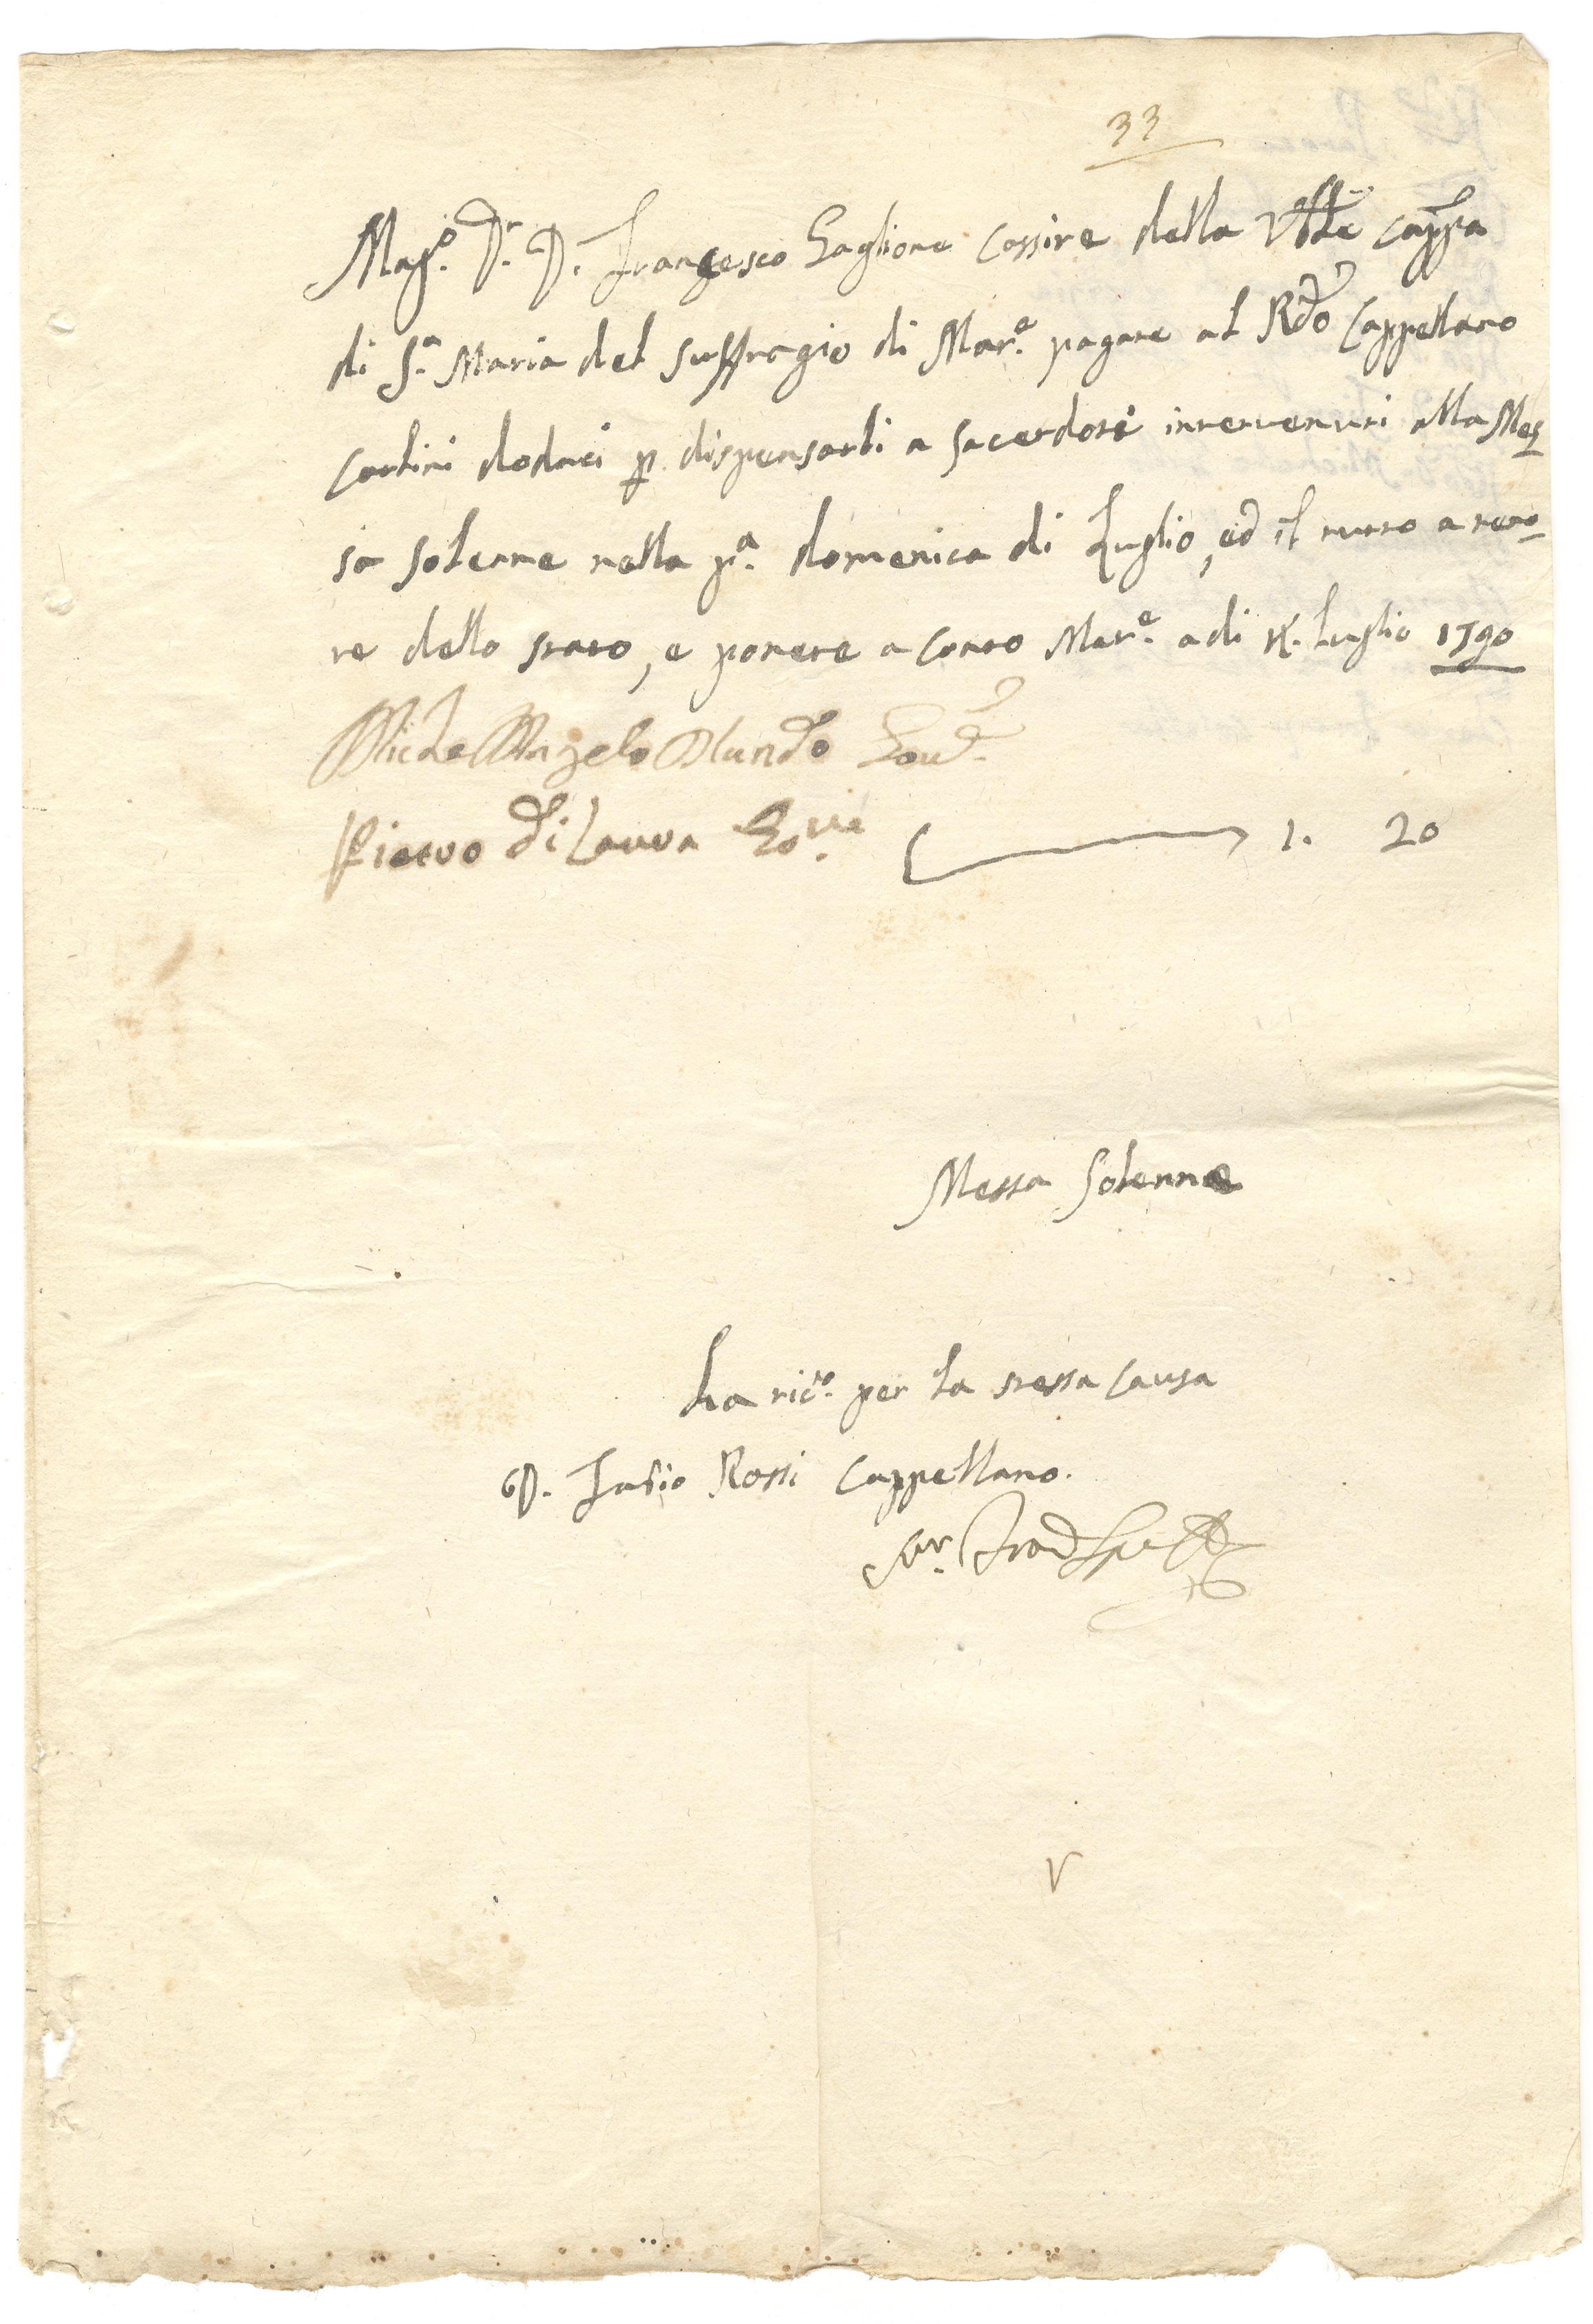 33
Mag.co Dr. D. Francesco Gaglione Cassire della Vble Cappa
di S.a Maria del Suffragio di Mar.e pagare al Rdo Cappellano
Carlini dodaci p. dispensarli a Sacerdoti intervenuti alla Mes
sa Solenne nella p.a domenica di Luglio, ed il tutto a teno-
re dello stato, e ponere a conto Mar.e a di Luglio 1790
Michel'Angelo Gov.e
Pietro di Laura Gov.e 1. 20
Messa Solenne
ha ric.to per la stessa causa
D. Fabio Rossi Cappellano.
V